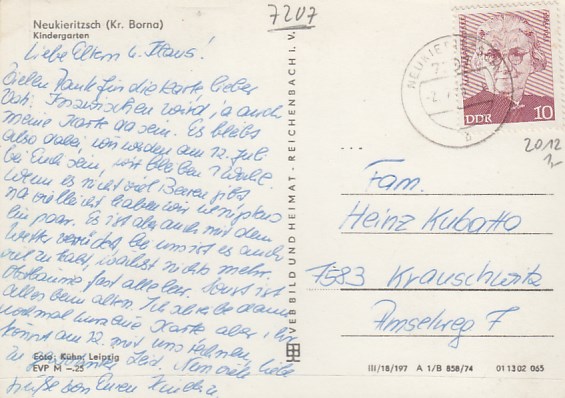 Neukieritzsch (Kr. Borna)
Kindergarten
7207
Liebe Eltern u. Klaus!
Vielen Dank für die Karte lieber
Vati. Inzwischen wird ja auch
meine Karte da sein. Es bleibt
also dabei, wir werden am 12. Juli
bei Euch sein, wir bleiben 1 Woche.
wenn es nicht viel Beeren gibt
na vielleicht haben wir wenigstens
ein paar. Es ist aber auch mit dem
Wetter verrückt, bei uns ist es auch
viel zu kalt, wächst nichts mehr.
Obstbäume fast alle leer. Sonst ist
alles beim alten. Ich schreibe dann
nochmal eine Karte aber ihr
könnt am 12. mit uns rechnen,
in Leid. Nun viele liebe
Grüße von Euren Kindern
Foto: Kühn, Leipzig
EVP M –.25
VEB BILD UND HEIMAT · REICHENBACH I. V.
NEUKIERITZSCH
DDR 10
2012
Fam.
Heinz Kubatta
7583 Krauschwitz
Amselweg 7
III/18/197 A 1/B 858/74 01 13 02 065